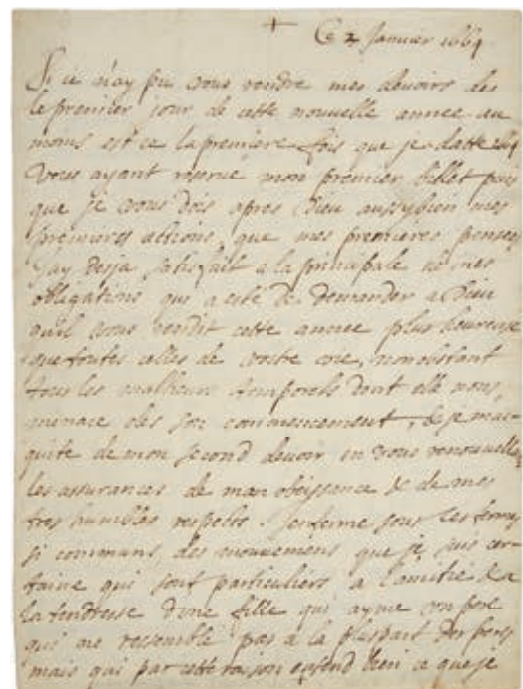 + Ce 2 Janvier 1664
Si ie n'ay pu vous rendre mes devoirs des
le premier jour de cette nouvelle annee au
moins est ce la premiere fois que je datte 1664
Vous ayant reserve mon premier billet puis
que je vous dois apres Dieu aussybien mes
premieres actions, que mes premieres pensees
Jay desja satisfait a la principale de mes
obligations qui a esté de demander a Dieu
quil vous rendit cette annee plus heureuse
que toutes celles de vostre vie, nonobstant
tous les malheurs temporels dont elle nous
menace des son commencement, & je mac-
quite de mon second devoir en vous renouvellant
les assurances de mon obeissance & de mes
tres humbles respects. Jenferme sous ces termes
si communs des mouvemens que je suis cer-
taine qui sont particuliers a l'amitié & a
la tendresse dune fille qui ayme un pere
qui ne ressemble pas a la pluspart des peres
mais qui par cette raison entend bien ce que je